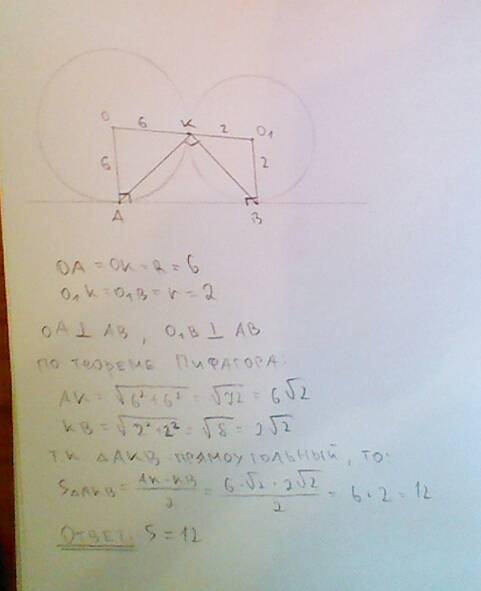 O 6 K 2 O₁
6 2
A B
OA = OK = R = 6
O₁K = O₁B = r = 2
OA ⊥ AB, O₁B ⊥ AB
ПО ТЕОРЕМЕ ПИФАГОРА:
AK = √(6²+6²) = √72 = 6√2
KB = √(2²+2²) = √8 = 2√2
Т.К. ΔAKB-ПРЯМОУГОЛЬНЫЙ, ТО:
S△AKB = (AK·KB)/2 = (6·√2·2√2)/2 = 6·2 = 12
ОТВЕТ: S = 12